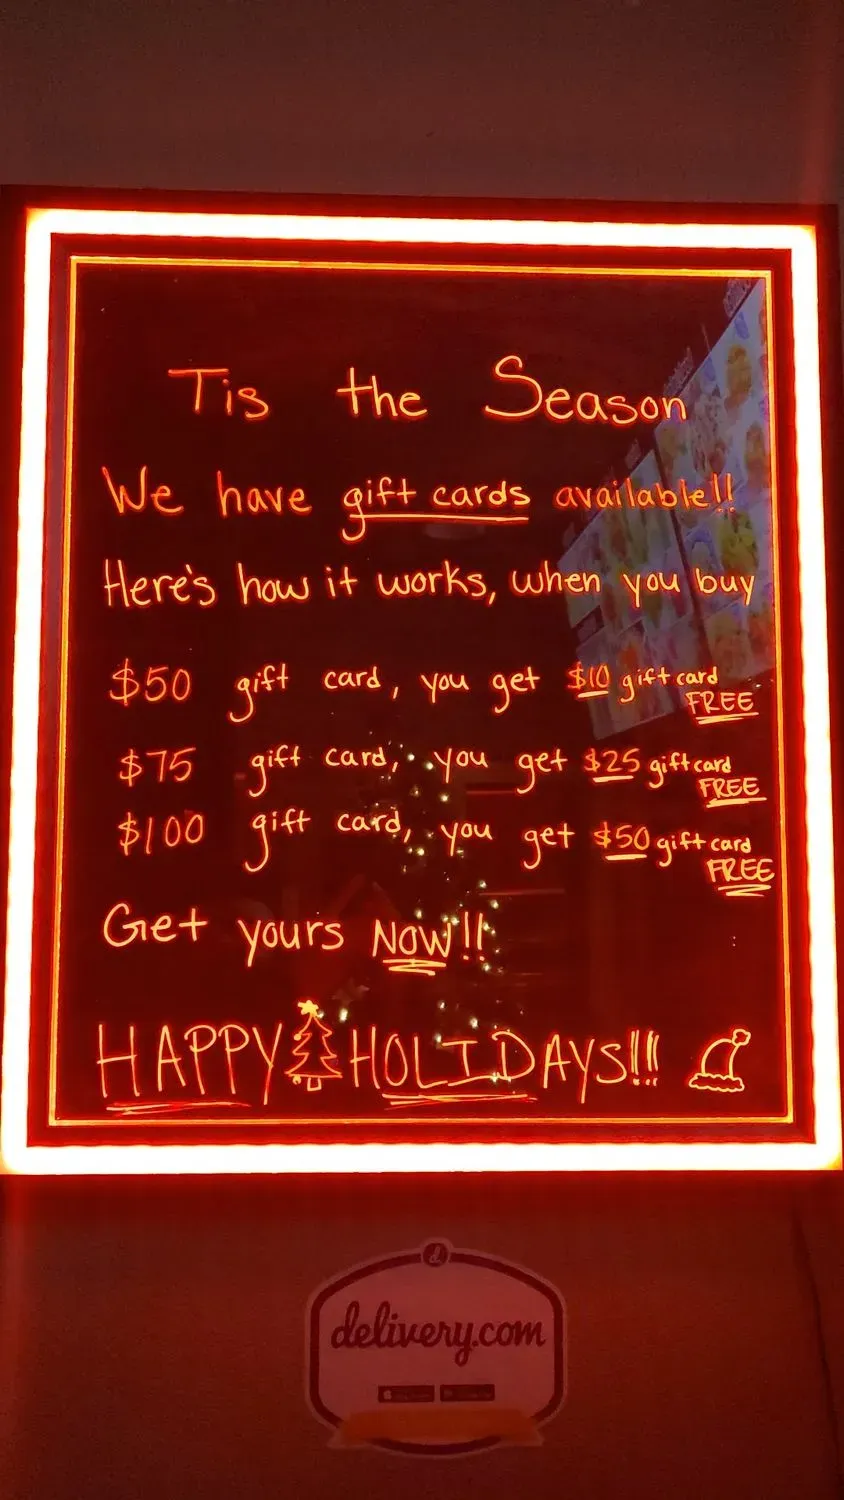 Tis the Season
We have gift cards available!!
Here's how it works, when you buy
$50 gift card, you get $10 gift card
FREE
$75 gift card, you get $25 gift card
FREE
$100 gift card, you get $50 gift card
FREE
Get yours NOW!!
HAPPY HOLIDAYS!!!
d
delivery.com